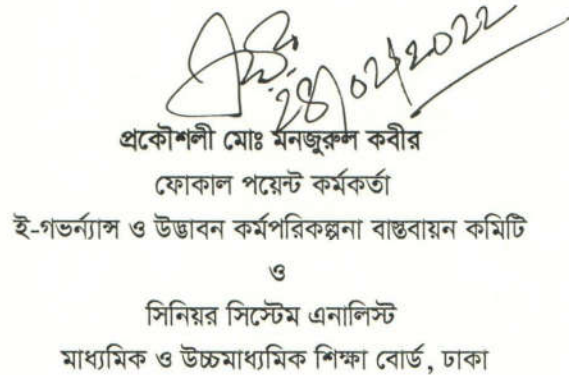 28/02/2022
প্রকৌশলী মোঃ মনজুরুল কবীর
ফোকাল পয়েন্ট কর্মকর্তা
ই-গভর্ন্যান্স ও উদ্ভাবন কর্মপরিকল্পনা বাস্তবায়ন কমিটি
ও
সিনিয়র সিস্টেম এনালিস্ট
মাধ্যমিক ও উচ্চমাধ্যমিক শিক্ষা বোর্ড, ঢাকা